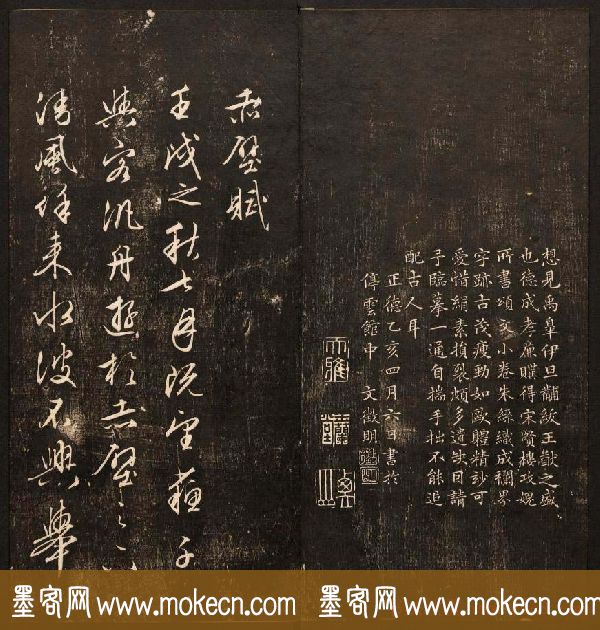 想見禹皐伊旦黼紋王猷之盛
也德成孝廉購得宋賢樓攻媿
所書頌文小卷朱絲織成襴界
字跡古茂瘦勁如歐體精妙可
愛惜絹素損裂頗多遺失因請
予臨摹一通自揣手拙不能追
配古人耳
正德乙亥四月六日書於
停雲館中 文徵明
赤壁賦
壬戌之秋七月既望蘇子
與客汎舟遊於赤壁之下
清風徐來水波不興舉
墨客网 www.mokecn.com
墨客网 www.mokecn.com